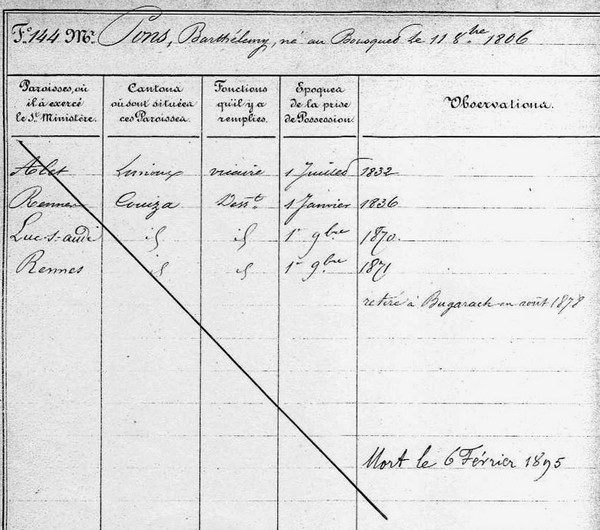 F.º 144 Mr. Pons, Barthélemy, né au Bousquet le 11 8.bre 1806
Paroisses, où il a exercé le St. Ministère.
Cantons où sont situées ces Paroisses.
Fonctions qu'il y a remplies.
Epoques de la prise de Possession.
Observations.
Alet Limoux vicaire 1 Juillet 1832
Rennes Couiza Dess.t 1 Janvier 1836
Luc-s-aude id id 1er 9bre 1870.
Rennes id id 1er 9bre 1871
retiré à Bugarach en août 1878
Mort le 6 Février 1895